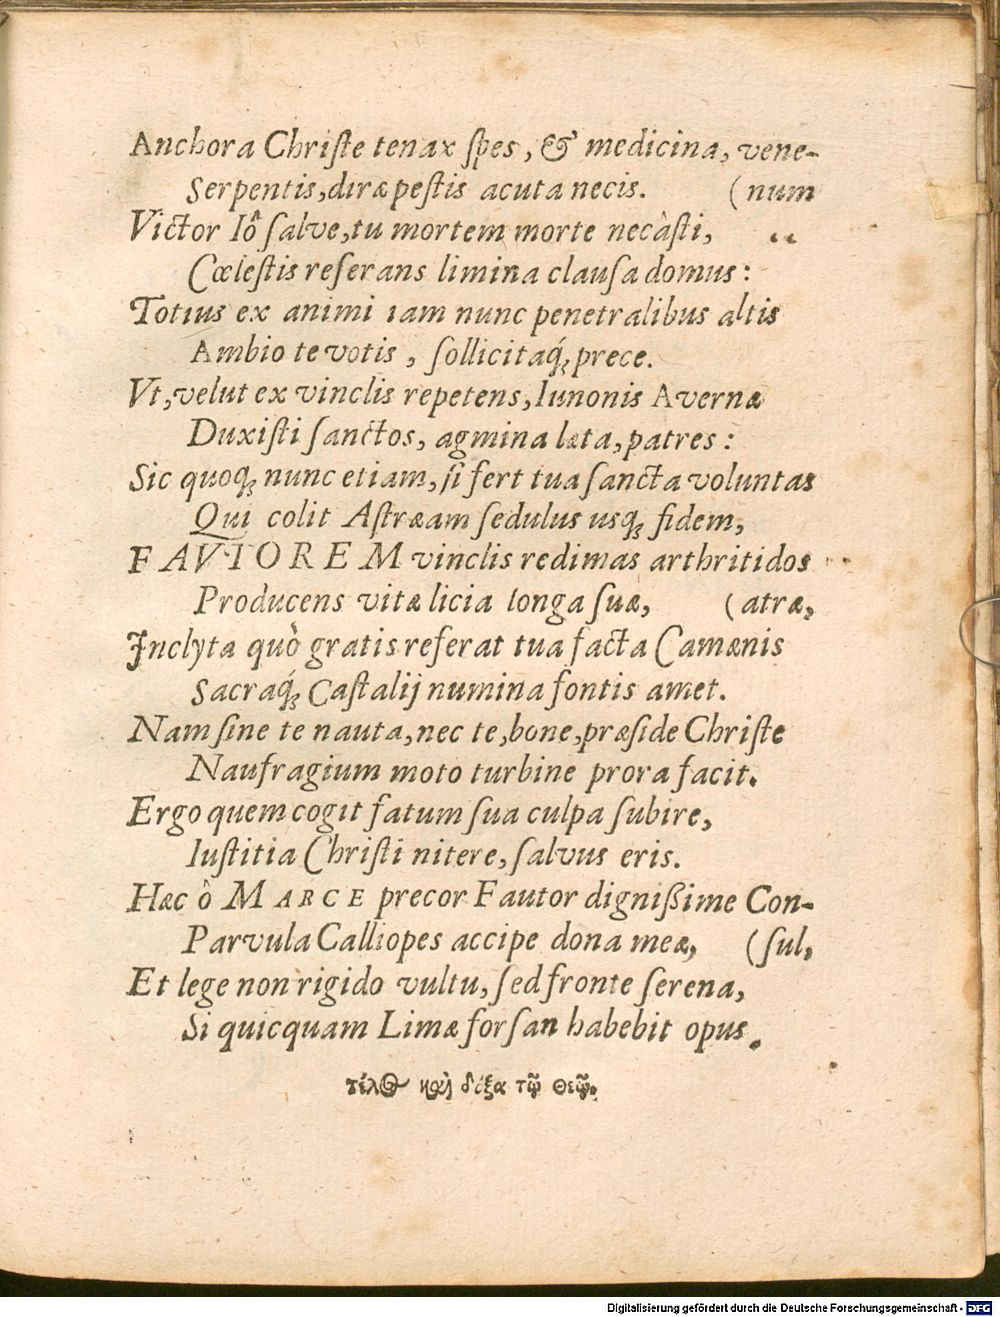 Anchora Christe tenax spes, & medicina, vene-
Serpentis, diræ pestis acuta necis. (num
Victor Iô salve, tu mortem morte necâsti,
Cœlestis reserans limina clausa domus:
Totius ex animi iam nunc penetralibus altis
Ambio te votis, sollicitaq́; prece.
Vt, velut ex vinclis repetens, Iunonis Avernæ
Duxisti sanctos, agmina læta, patres:
Sic quoq; nunc etiam, si fert tua sancta voluntas
Qui colit Astræam sedulus usq; fidem,
FAVTOREM vinclis redimas arthritidos
Producens vitæ licia longa suæ, (atræ,
Inclyta quò gratis referat tua facta Camænis
Sacraq́; Castalij numina fontis amet.
Nam sine te nauta, nec te, bone, præside Christe
Naufragium moto turbine prora facit.
Ergo quem cogit fatum sua culpa subire,
Iustitia Christi nitere, salvus eris.
Hæc ô MARCE precor Fautor dignißime Con-
Parvula Calliopes accipe dona meæ, (sul,
Et lege non rigido vultu, sed fronte serena,
Si quicquam Limæ forsan habebit opus.
τέλος καὶ δόξα τῷ θεῷ.
Digitalisierung gefördert durch die Deutsche Forschungsgemeinschaft - DFG